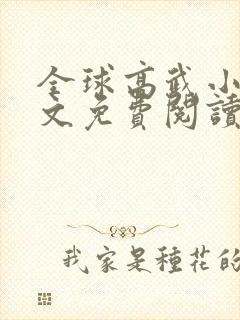 全球高武小
文免費閱讀
我家是種花的